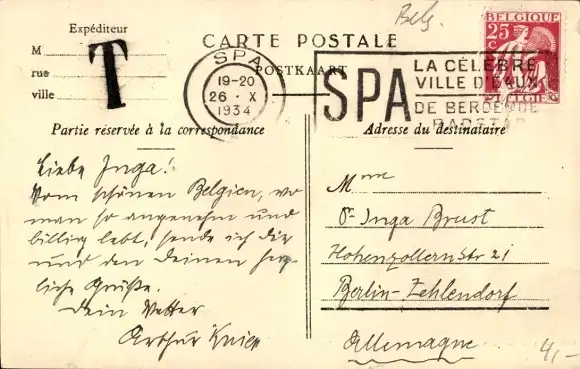 Belg.
Expéditeur
M
rue
ville
T
CARTE POSTALE
POSTKAART
SPA
19-20
26 · X
1934
SPA
LA CÉLÈBRE
VILLE D'EAUX
DE BEROEMDE
BADSTAD
BELGIQUE
25
C
BELGIE
Partie réservée à la correspondance
Adresse du destinataire
Liebe Inga!
Vom schönen Belgien, wo
man so angenehm und
billig lebt, sende ich dir
und den Deinen herz
liche Grüße.
Dein Vetter
Arthur
Mme
Dr Inga Brust
Hohenzollernstr 21
Berlin-Zehlendorf
Allemagne
4,-